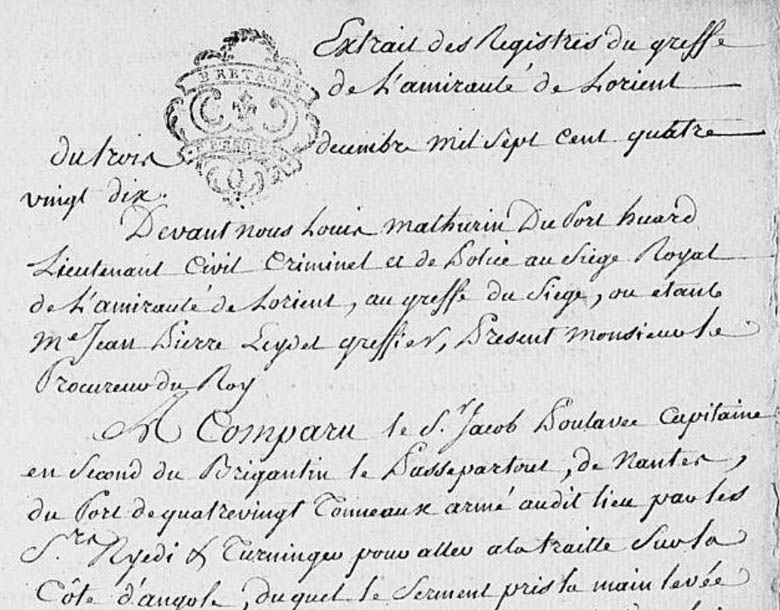 Extrait des Registres du greffe
de L'amirauté de Lorient
BRETAGNE
du trois decembre mil sept cent quatre
vingt dix.
Devant nous Louis Mathurin Du Port huard
Lieutenant Civil Criminel et de Police au Siege Royal
de L'amirauté de Lorient, au greffe du Siege, ou etant
Me Jean Pierre Leydet greffier, Present Monsieur le
Procureur du Roy
A Comparu le Sr. Jacob Boutavee Capitaine
en Second du Brigantin le Passepartout, de Nantes,
du Port de quatrevingt Tonneaux armé audit lieu par les
Srs Ryedi & Turninger pour aller a la traitte Sur la
Côte d'angole, duquel le Serment pris la main levée